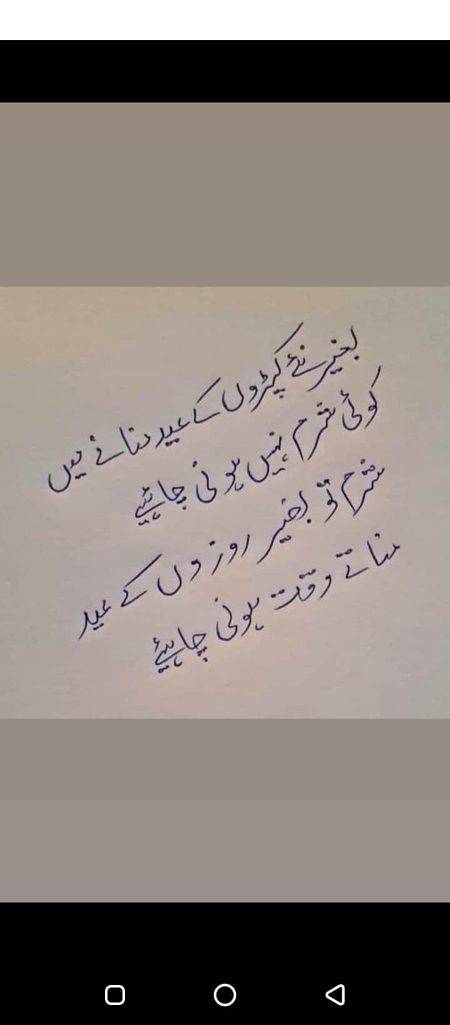 بغیر نئے کپڑوں کے عید منانے میں
کوئی شرم نہیں ہونی چاہئیے
شرم تو بغیر روزوں کے عید
مناتے وقت ہونی چاہئیے